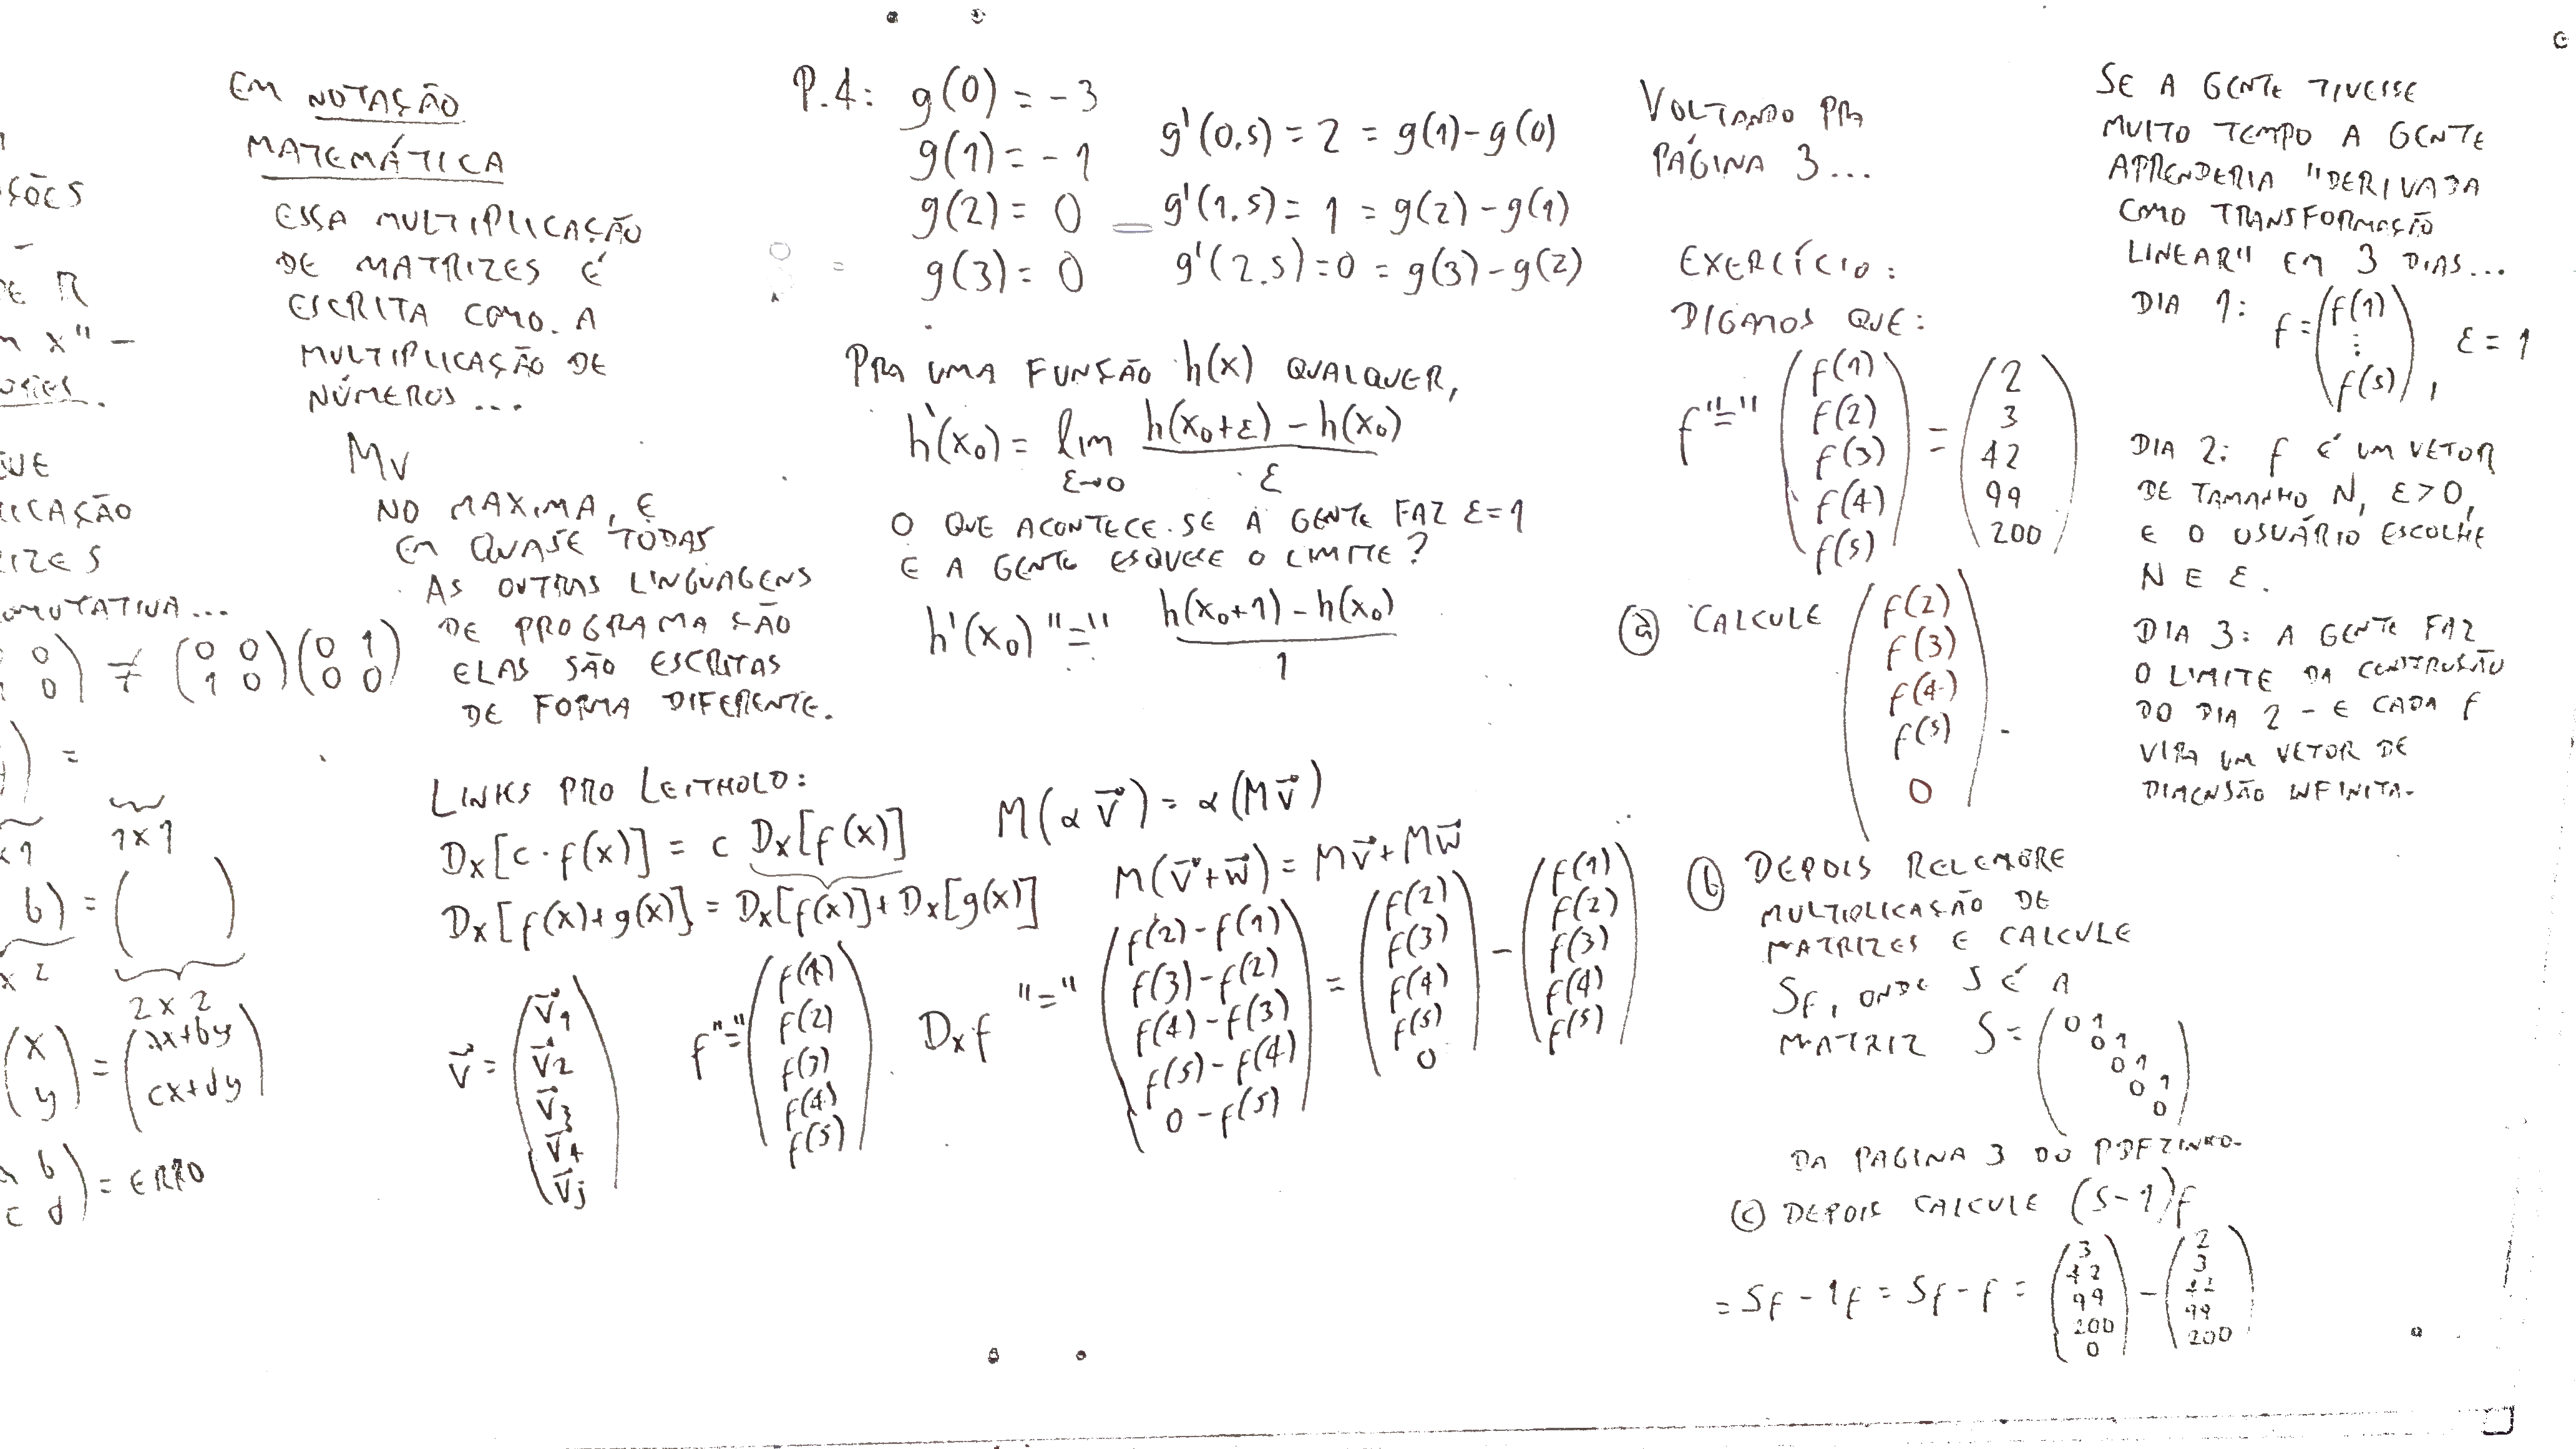 ÇÕES
DE R
m x" —
UE
ICAÇÃO
IZES
OMUTATIVA...
0
0) ≠ (0 0
1 0)(0 1
0 0)
) =
1x1
b) = ( )
x 2
2 x 2
(x
y) = (ax+by
cx+dy)
a b
c d) = ERRO
EM NOTAÇÃO
MATEMÁTICA
ESSA MULTIPLICAÇÃO
DE MATRIZES É
ESCRITA COMO A
MULTIPLICAÇÃO DE
NÚMEROS...
Mv
NO MAXIMA, E
EM QUASE TODAS
AS OUTRAS LINGUAGENS
DE PROGRAMAÇÃO
ELAS SÃO ESCRITAS
DE FORMA DIFERENTE.
P.4: g(0) = -3
g(1) = -1
g(2) = 0
g(3) = 0
g'(0.5) = 2 = g(1)-g(0)
g'(1.5) = 1 = g(2)-g(1)
g'(2.5) = 0 = g(3)-g(2)
PRA UMA FUNÇÃO h(x) QUALQUER,
h'(x₀) = lim ε→0 (h(x₀+ε) - h(x₀))/ε
O QUE ACONTECE SE A GENTE FAZ ε=1
E A GENTE ESQUECE O LIMITE?
h'(x₀) "=" (h(x₀+1) - h(x₀))/1
LINKS PRO LEITHOLD:
Dx[c·f(x)] = c Dx[f(x)]
Dx[f(x)+g(x)] = Dx[f(x)] + Dx[g(x)]
M(α v⃗) = α(M v⃗)
M(v⃗+w⃗) = Mv⃗+Mw⃗
v⃗ = (v⃗₁
v⃗₂
v⃗₃
v⃗₄
v⃗j)
f "=" (f(1)
f(2)
f(3)
f(4)
f(5))
Dxf "=" (f(2)-f(1)
f(3)-f(2)
f(4)-f(3)
f(5)-f(4)
0-f(5))
= (f(2)
f(3)
f(4)
f(5)
0)
- (f(1)
f(2)
f(3)
f(4)
f(5))
VOLTANDO PRA
PÁGINA 3...
EXERCÍCIO:
DIGAMOS QUE:
f "=" (f(1)
f(2)
f(3)
f(4)
f(5))
= (2
3
42
99
200)
ⓐ CALCULE (f(2)
f(3)
f(4)
f(5)
0) .
ⓑ DEPOIS RELEMBRE
MULTIPLICAÇÃO DE
MATRIZES E CALCULE
Sf, ONDE S É A
MATRIZ S = (0 1
0 1
0 1
0 1
0)
DA PAGINA 3 DO PDFZINHO.
ⓒ DEPOIS CALCULE (S-1)f
= Sf - 1f = Sf - f = (3
42
99
200
0)
- (2
3
42
99
200)
SE A GENTE TIVESSE
MUITO TEMPO A GENTE
APRENDERIA "DERIVADA
COMO TRANSFORMAÇÃO
LINEAR" EM 3 DIAS...
DIA 1: f = (f(1)
⋮
f(5)), ε = 1
DIA 2: f É UM VETOR
DE TAMANHO N, ε>0,
E O USUÁRIO ESCOLHE
N E ε.
DIA 3: A GENTE FAZ
O LIMITE DA CONSTRUÇÃO
DO DIA 2 - E CADA f
VIRA UM VETOR DE
DIMENSÃO INFINITA.